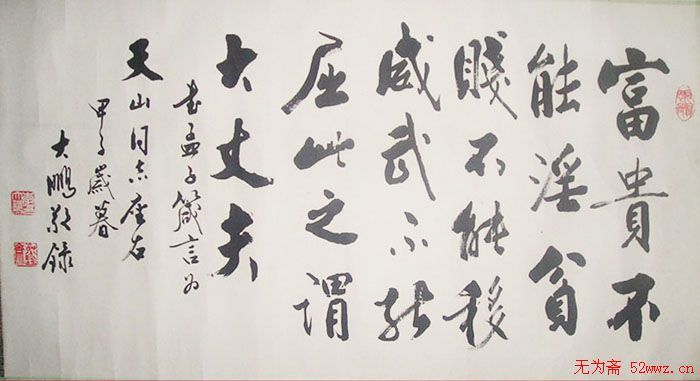 富貴不
能淫貧
賤不能移
威武不能
屈此之謂
大丈夫
書孟子箴言为
天山同志座右
甲子歲暮
大鵬敬録
无为斋 52wwz.cn